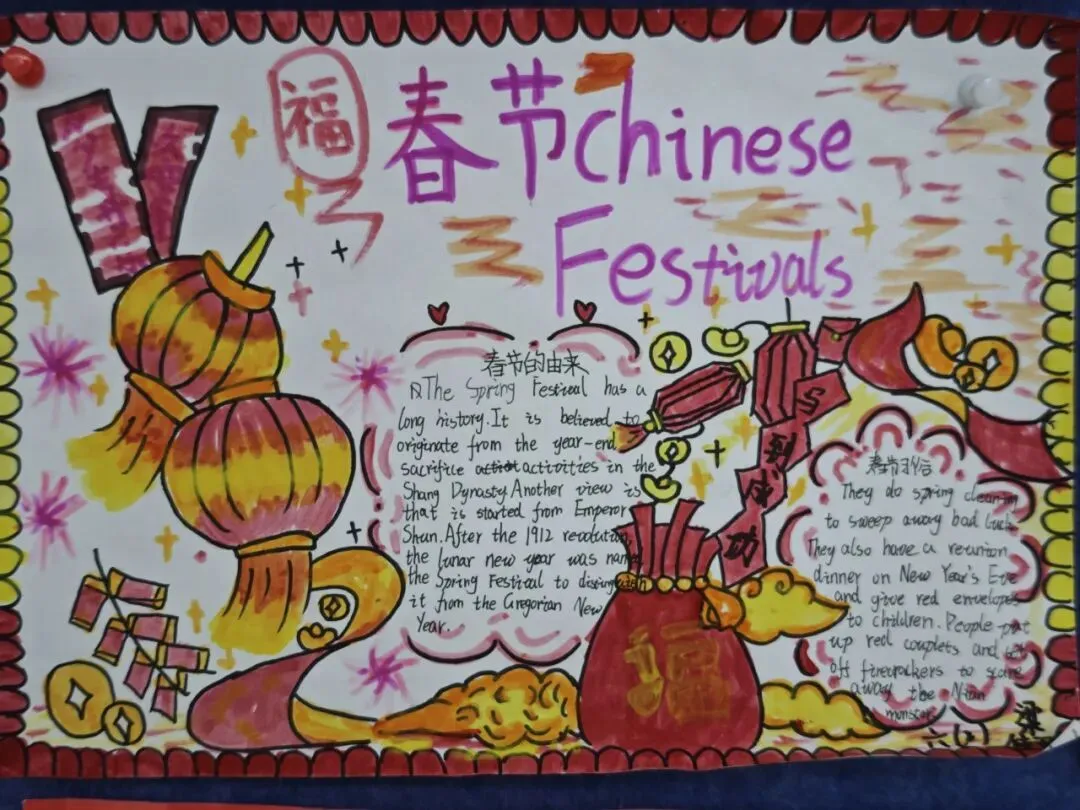 福
春节Chinese
Festivals
春节的由来
The Spring Festival has a
long history.It is believed to
originate from the year-end
sacrifice activities in the
Shang Dynasty.Another view is
that is started from Emperor
Shun.After the 1912 revolution,
the lunar new year was named
the Spring Festival to distinguish
it from the Gregorian New
Year.
到
成
功
福
春节习俗
They do spring cleaning
to sweep away bad luck.
They also have a reunion
dinner on New Year's Eve
and give red envelopes
to children.People put
up red couplets and set
off firecrackers to scare
away the Nian
monster.
六(2)